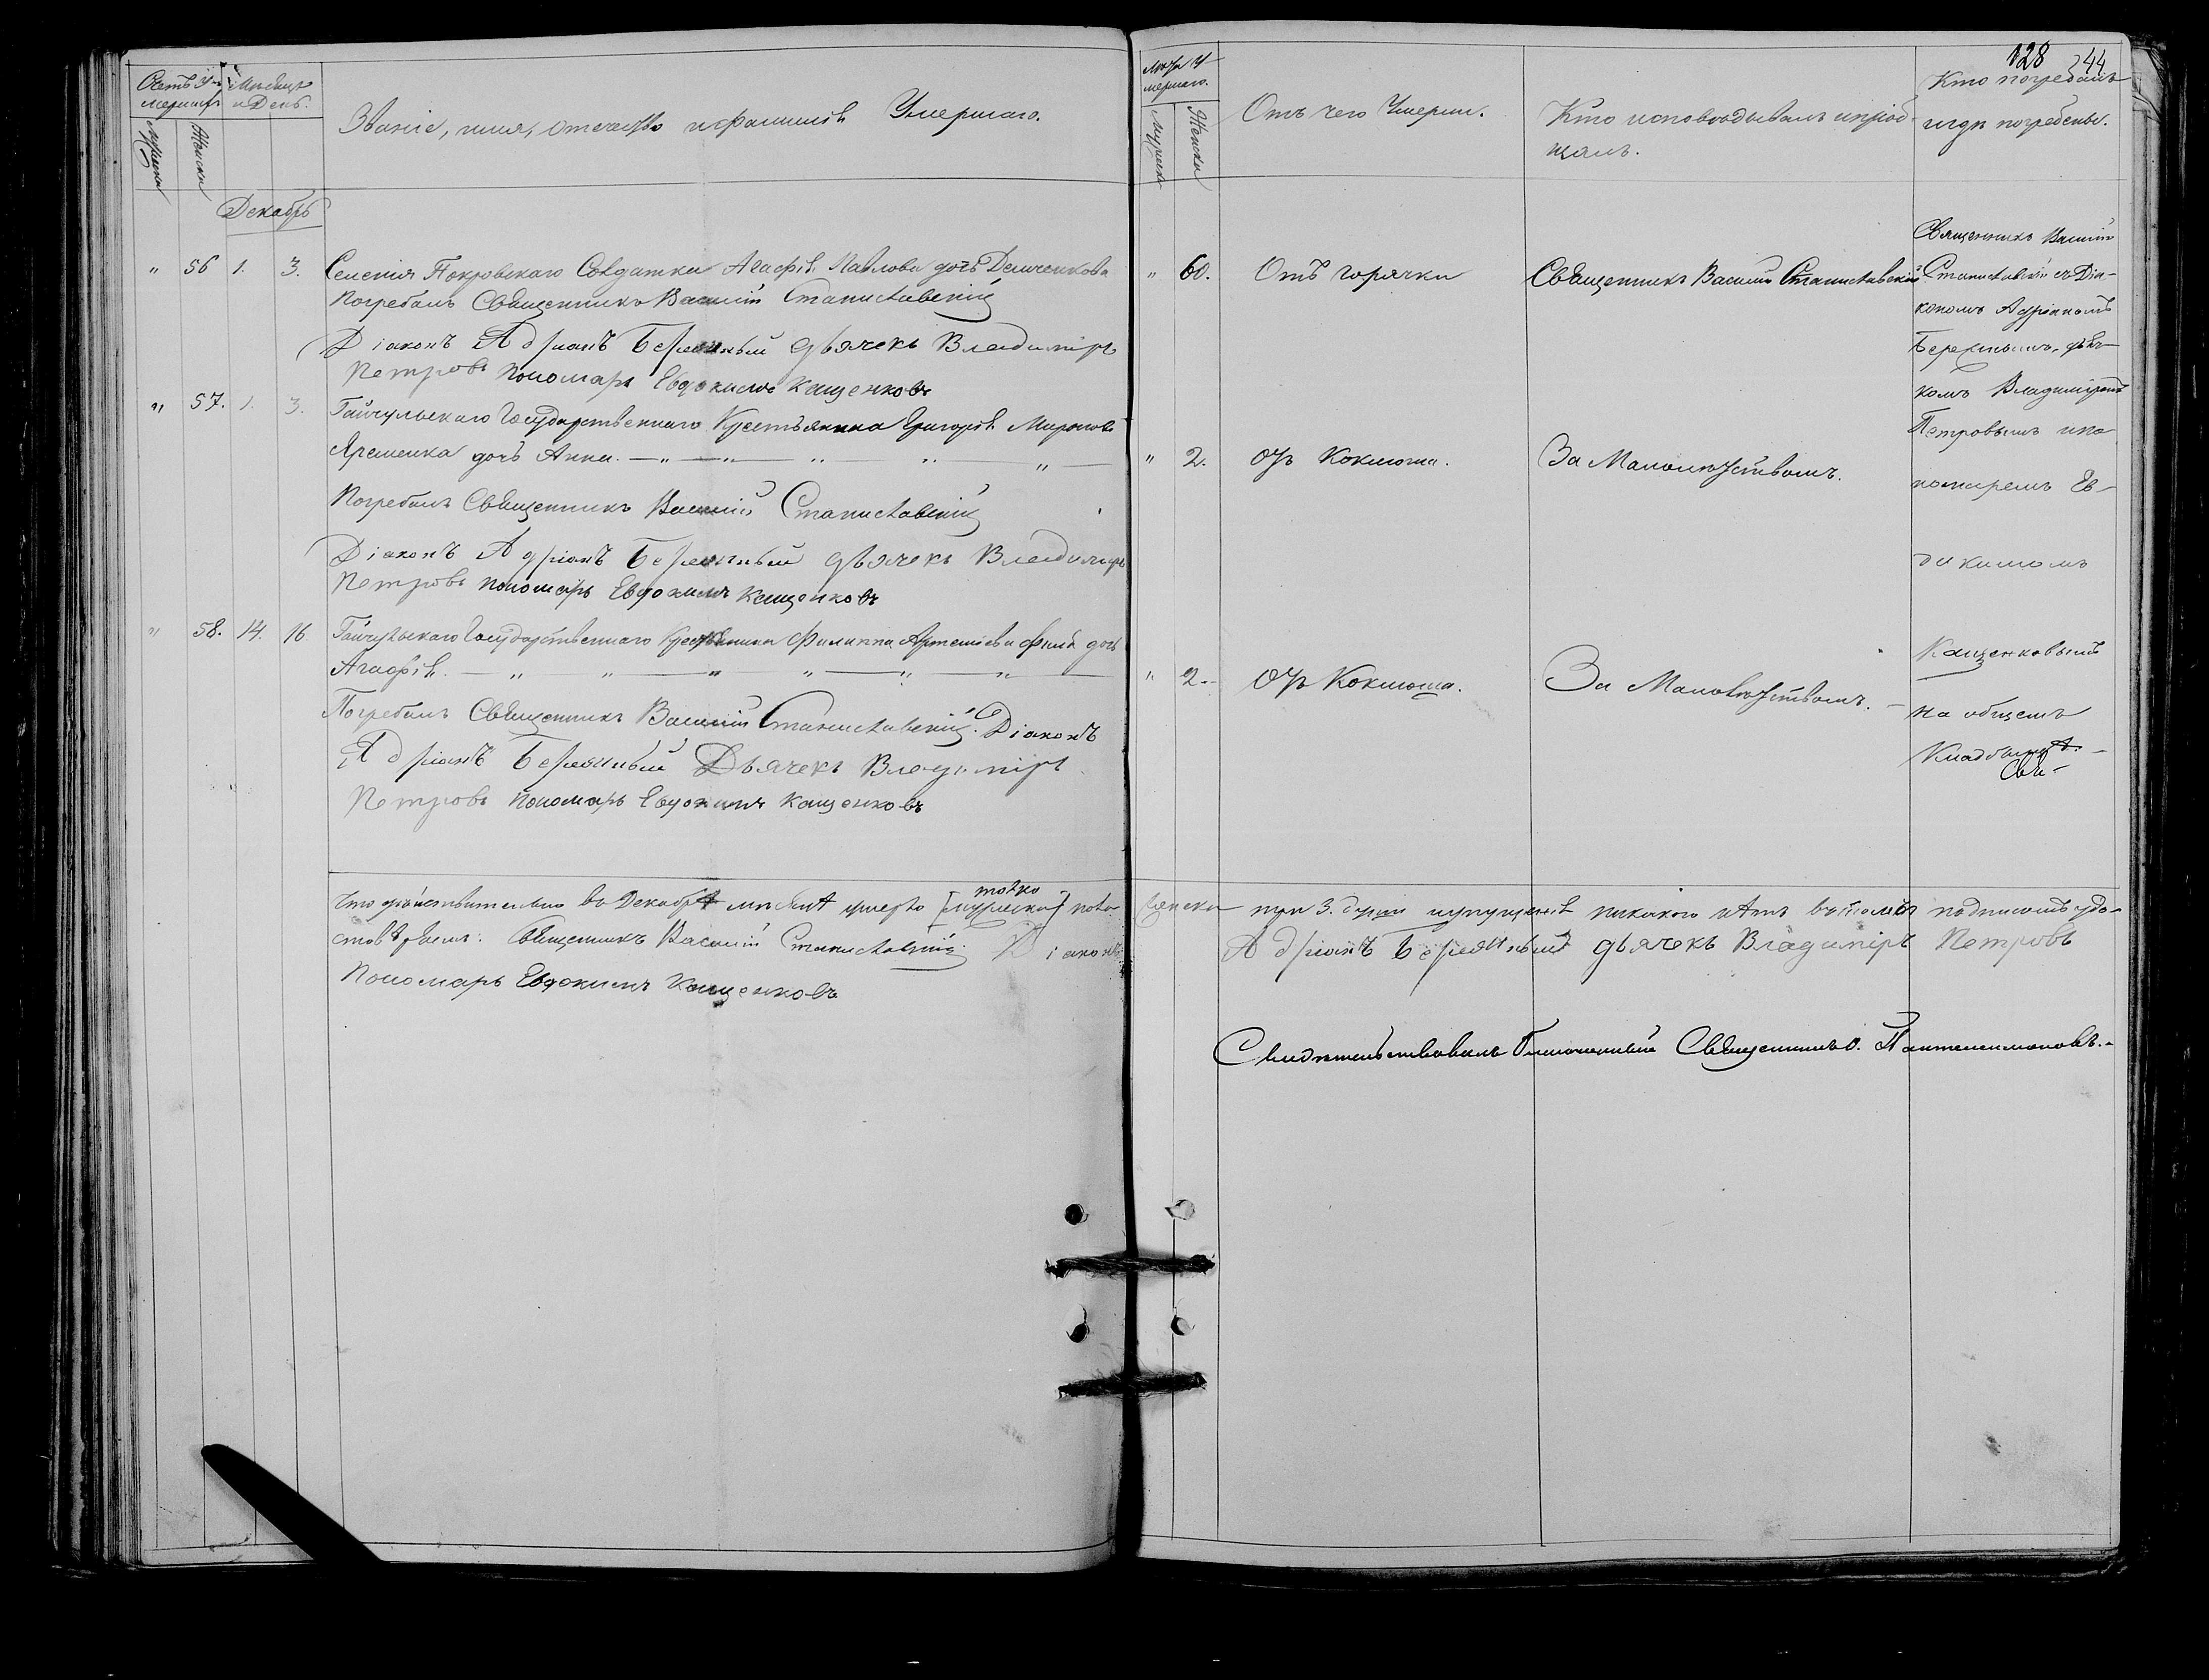 Счетъ У-
мершихъ
Мѣсяцъ
и День.
Мужеска
Женска
Званіе, имя, отечество и фамилія Умершаго.
Декабрь
" 56 1. 3. Селенія Покровскаго Солдатка Агафія Павлова дочь Демченкова
Погребалъ Священникъ Василій Станиславскій
Діаконъ Адріанъ Бережный дьячекъ Владиміръ
Петровъ пономарь Евдокимъ Кащенковъ
" 57. 1. 3. Гайчульскаго Государственнаго Крестьянина Григорія Миронова
Яременка дочь Анна.
Погребалъ Священникъ Василій Станиславскій
Діаконъ Адріанъ Бережный дьячекъ Владиміръ
Петровъ пономарь Евдокимъ Кащенковъ
" 58. 14. 16. Гайчульскаго Государственнаго Крестьянина Филиппа Артеміева дочь
Агафія.
Погребалъ Священникъ Василій Станиславскій. Діаконъ
Адріанъ Бережный Дьячекъ Владиміръ
Петровъ пономарь Евдокимъ Кащенковъ
Что дѣйствительно въ Декабрѣ мѣсяцѣ умерло [мужеска] толко пола
женска три 3. души и упущенія никакого нѣтъ въ томъ подписомъ удо-
стовѣряемъ. Священникъ Василій Станиславскій. Діаконъ
Адріанъ Бережный дьячекъ Владиміръ Петровъ
Пономарь Евдокимъ Кащенковъ
128 244
Лѣта У-
мершаго.
Мужеска
Женска
Отъ чего Умерли.
Кто исповѣдывалъ и пріоб-
щалъ.
Кто погребалъ
и гдѣ погребены.
" 60. Отъ горячки Священникъ Василій Станиславскій
" 2. Отъ Коклюша. За Малолѣтствомъ.
" 2. Отъ Коклюша. За Малолѣтствомъ.
Священникъ Василій
Станиславскій съ Діа-
кономъ Адріаномъ
Бережнымъ, дьяч-
комъ Владиміромъ
Петровымъ и по-
номаремъ Ев-
докимомъ
Кащенковымъ
на общемъ
Кладбищѣ.
Свидѣтельствовалъ Благочинный Священникъ Пантелеимоновъ.